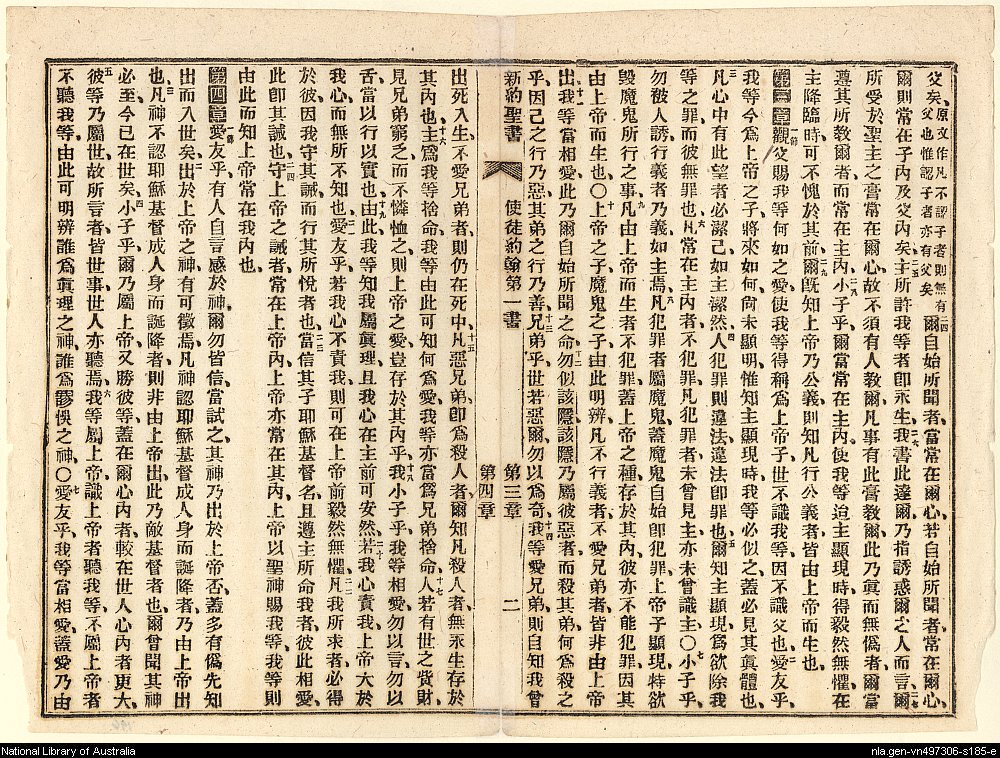 父矣、原文作凡不認子者則無有父也惟認子者亦有父矣二四爾自始所聞者、當常在爾心、若自始所聞者、常在爾心、
爾則常在子內及父內矣、二五主所許我等者、即永生、二六我書此達爾、乃指誘惑爾之人而言、二七爾
所受於聖主之膏常在爾心、故不須有人教爾、凡事有此膏教爾、此乃眞而無僞者、爾當
遵其所教爾者、而常在主內、二八小子乎、爾當常在主內、使我等迨主顯現時、得毅然無懼、在
主降臨時、可不愧於其前、二九爾旣知上帝乃公義、則知凡行公義者、皆由上帝而生也、
第三章一節觀父賜我等何如之愛、使我等得稱爲上帝子、世不識我等、因不識父也、二愛友乎、
我等今爲上帝之子、將來如何、尚未顯明、惟知主顯現時、我等必似之、蓋必見其眞體也、
三凡心中有此望者、必潔己如主潔然、四人犯罪則違法、違法即罪也、五爾知主顯現、爲欲除我
等之罪、而彼無罪也、六凡常在主內者不犯罪、凡犯罪者、未曾見主、亦未曾識主、○七小子乎、
勿被人誘、行義者乃義、如主焉、八凡犯罪者屬魔鬼、蓋魔鬼自始即犯罪、上帝子顯現、特欲
毀魔鬼所行之事、九凡由上帝而生者不犯罪、蓋上帝之種、存於其內、彼亦不能犯罪、因其
由上帝而生也、○十上帝之子、魔鬼之子、由此明辨、凡不行義者、不愛兄弟者、皆非由上帝
出、十一我等當相愛、此乃爾自始所聞之命、十二勿似該隱、該隱乃屬彼惡者、而殺其弟、何爲殺之
乎、因己之行乃惡、其弟之行乃善、十三兄弟乎、世若惡爾、勿以爲奇、十四我等愛兄弟、則自知我曾
新約聖書 使徒約翰第一書 第三章 第四章 二
出死入生、不愛兄弟者、則仍在死中、十五凡惡兄弟、即爲殺人者、爾知凡殺人者、無永生存於
其內也、十六主爲我等捨命、我等由此可知何爲愛、我等亦當爲兄弟捨命、十七人若有世之貨財、
見兄弟窮乏、而不憐恤之、則上帝之愛、豈存於其內乎、十八我小子乎、我等相愛、勿以言、勿以
舌、當以行以實也、十九由此我等知我屬眞理、且我心在主前可安然、二十若我心責我、上帝大於
我心、而無所不知也、二一愛友乎、若我心不責我、則可在上帝前毅然無懼、二二凡我所求者、必得
於彼、因我守其誡、而行其所悅者也、二三當信其子耶穌基督名、且遵主所命我者、彼此相愛、
此卽其誡也、二四守上帝之誡者、常在上帝內、上帝亦常在其內、上帝以聖神賜我等、我等則
由此而知上帝常在我內也、
第四章一節愛友乎、有人自言感於神、爾勿皆信、當試之、其神乃出於上帝否、蓋多有僞先知
出而入世矣、二出於上帝之神、有可徵焉、凡神認耶穌基督成人身而誕降者、乃由上帝出
也、三凡神不認耶穌基督成人身而誕降者、則非由上帝出、此乃敵基督者也、爾曾聞其神
必至、今已在世矣、四小子乎、爾乃屬上帝、又勝彼等、蓋在爾心內者、較在世人心內者更大、
五彼等乃屬世、故所言者皆世事、世人亦聽焉、六我等屬上帝、識上帝者聽我等、不屬上帝者
不聽我等、由此可明辨誰爲眞理之神、誰爲謬悞之神、○七愛友乎、我等當相愛、蓋愛乃由
National Library of Australia
nla.gen-vn497306-s185-e